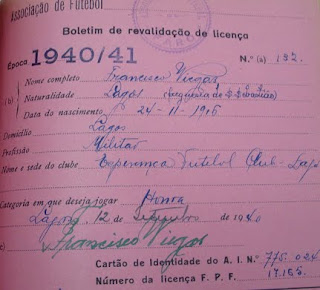 Associação de Futebol
Boletim de revalidação de licença
Época 1940/41 N.º (a) 132
Nome completo Francisco Viegas
(b) Naturalidade Lagos (freguesia de S. Sebastião)
Data do nascimento 24-11-1916
Domicílio Lagos
Profissão Militar
Nome e sede do clube Esperança Futebol Club - Lagos
Categoria em que deseja jogar Honra
Lagos, 12 de Setembro de 1940
Francisco Viegas
Cartão de Identidade do A. I. N.º 775.024
Número da licença F. P. F.